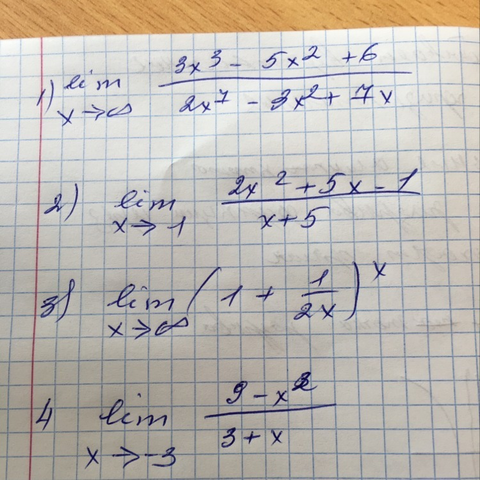 1) lim x→∞ (3x³ - 5x² + 6) / (2x⁷ - 3x² + 7x)
2) lim x→1 (2x² + 5x - 1) / (x + 5)
3) lim x→∞ (1 + 1/(2x))ˣ
4 lim x→-3 (9 - x²) / (3 + x)